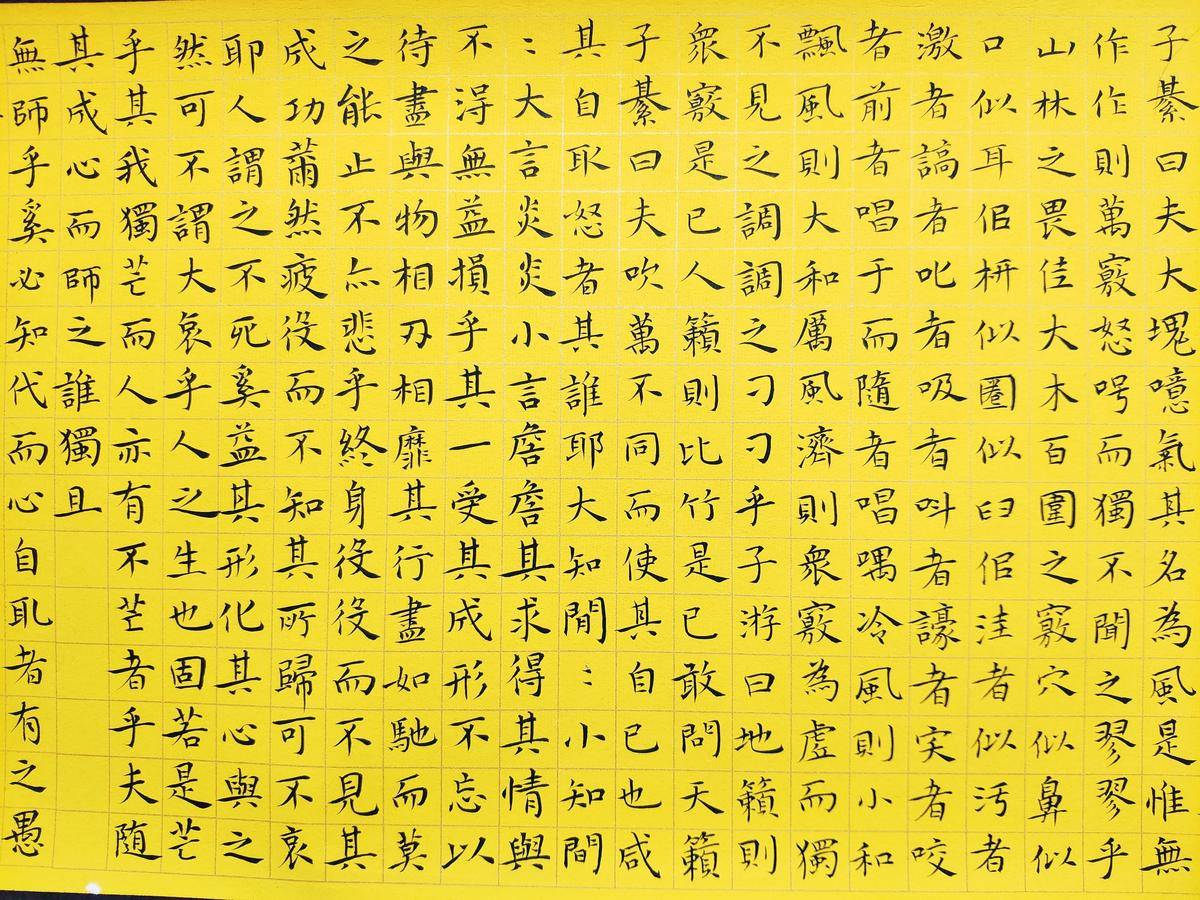 子綦曰夫大塊噫氣其名為風是惟無
作作則萬竅怒呺而獨不聞之翏翏乎
山林之畏佳大木百圍之竅穴似鼻似
口似耳佀枅似圈似臼佀洼者似汚者
激者謞者叱者吸者呌者譹者宎者咬
者前者唱于而隨者唱喁冷風則小和
飄風則大和厲風濟則衆竅為虛而獨
不見之調調之刁刁乎子游曰地籟則
衆竅是已人籟則比竹是已敢問天籟
子綦曰夫吹萬不同而使其自已也咸
其自取怒者其誰耶大知閒〻小知間
〻大言炎炎小言詹詹其求得其情與
不得無益損乎其一受其成形不忘以
待盡與物相刃相靡其行盡如馳而莫
之能止不亦悲乎終身役役而不見其
成功薾然疲役而不知其所歸可不哀
耶人謂之不死奚益其形化其心與之
然可不謂大哀乎人之生也固若是芒
乎其我獨芒而人亦有不芒者乎夫随
其成心而師之誰獨且
無師乎奚必知代而心自取者有之愚